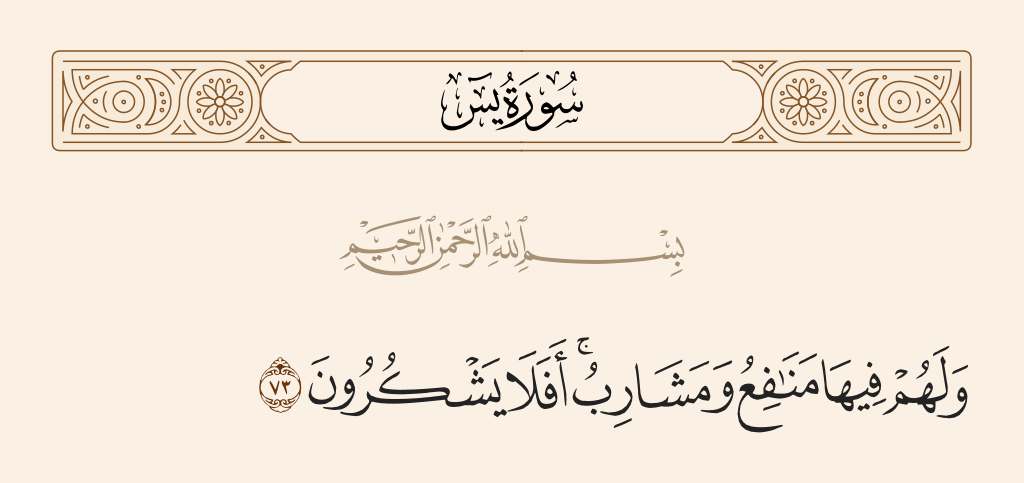 سُورَةُ يسٓ
بِسْمِ ٱللَّهِ ٱلرَّحْمَٰنِ ٱلرَّحِيمِ
وَلَهُمْ فِيهَا مَنَٰفِعُ وَمَشَارِبُ ۚ أَفَلَا يَشْكُرُونَ ٧٣